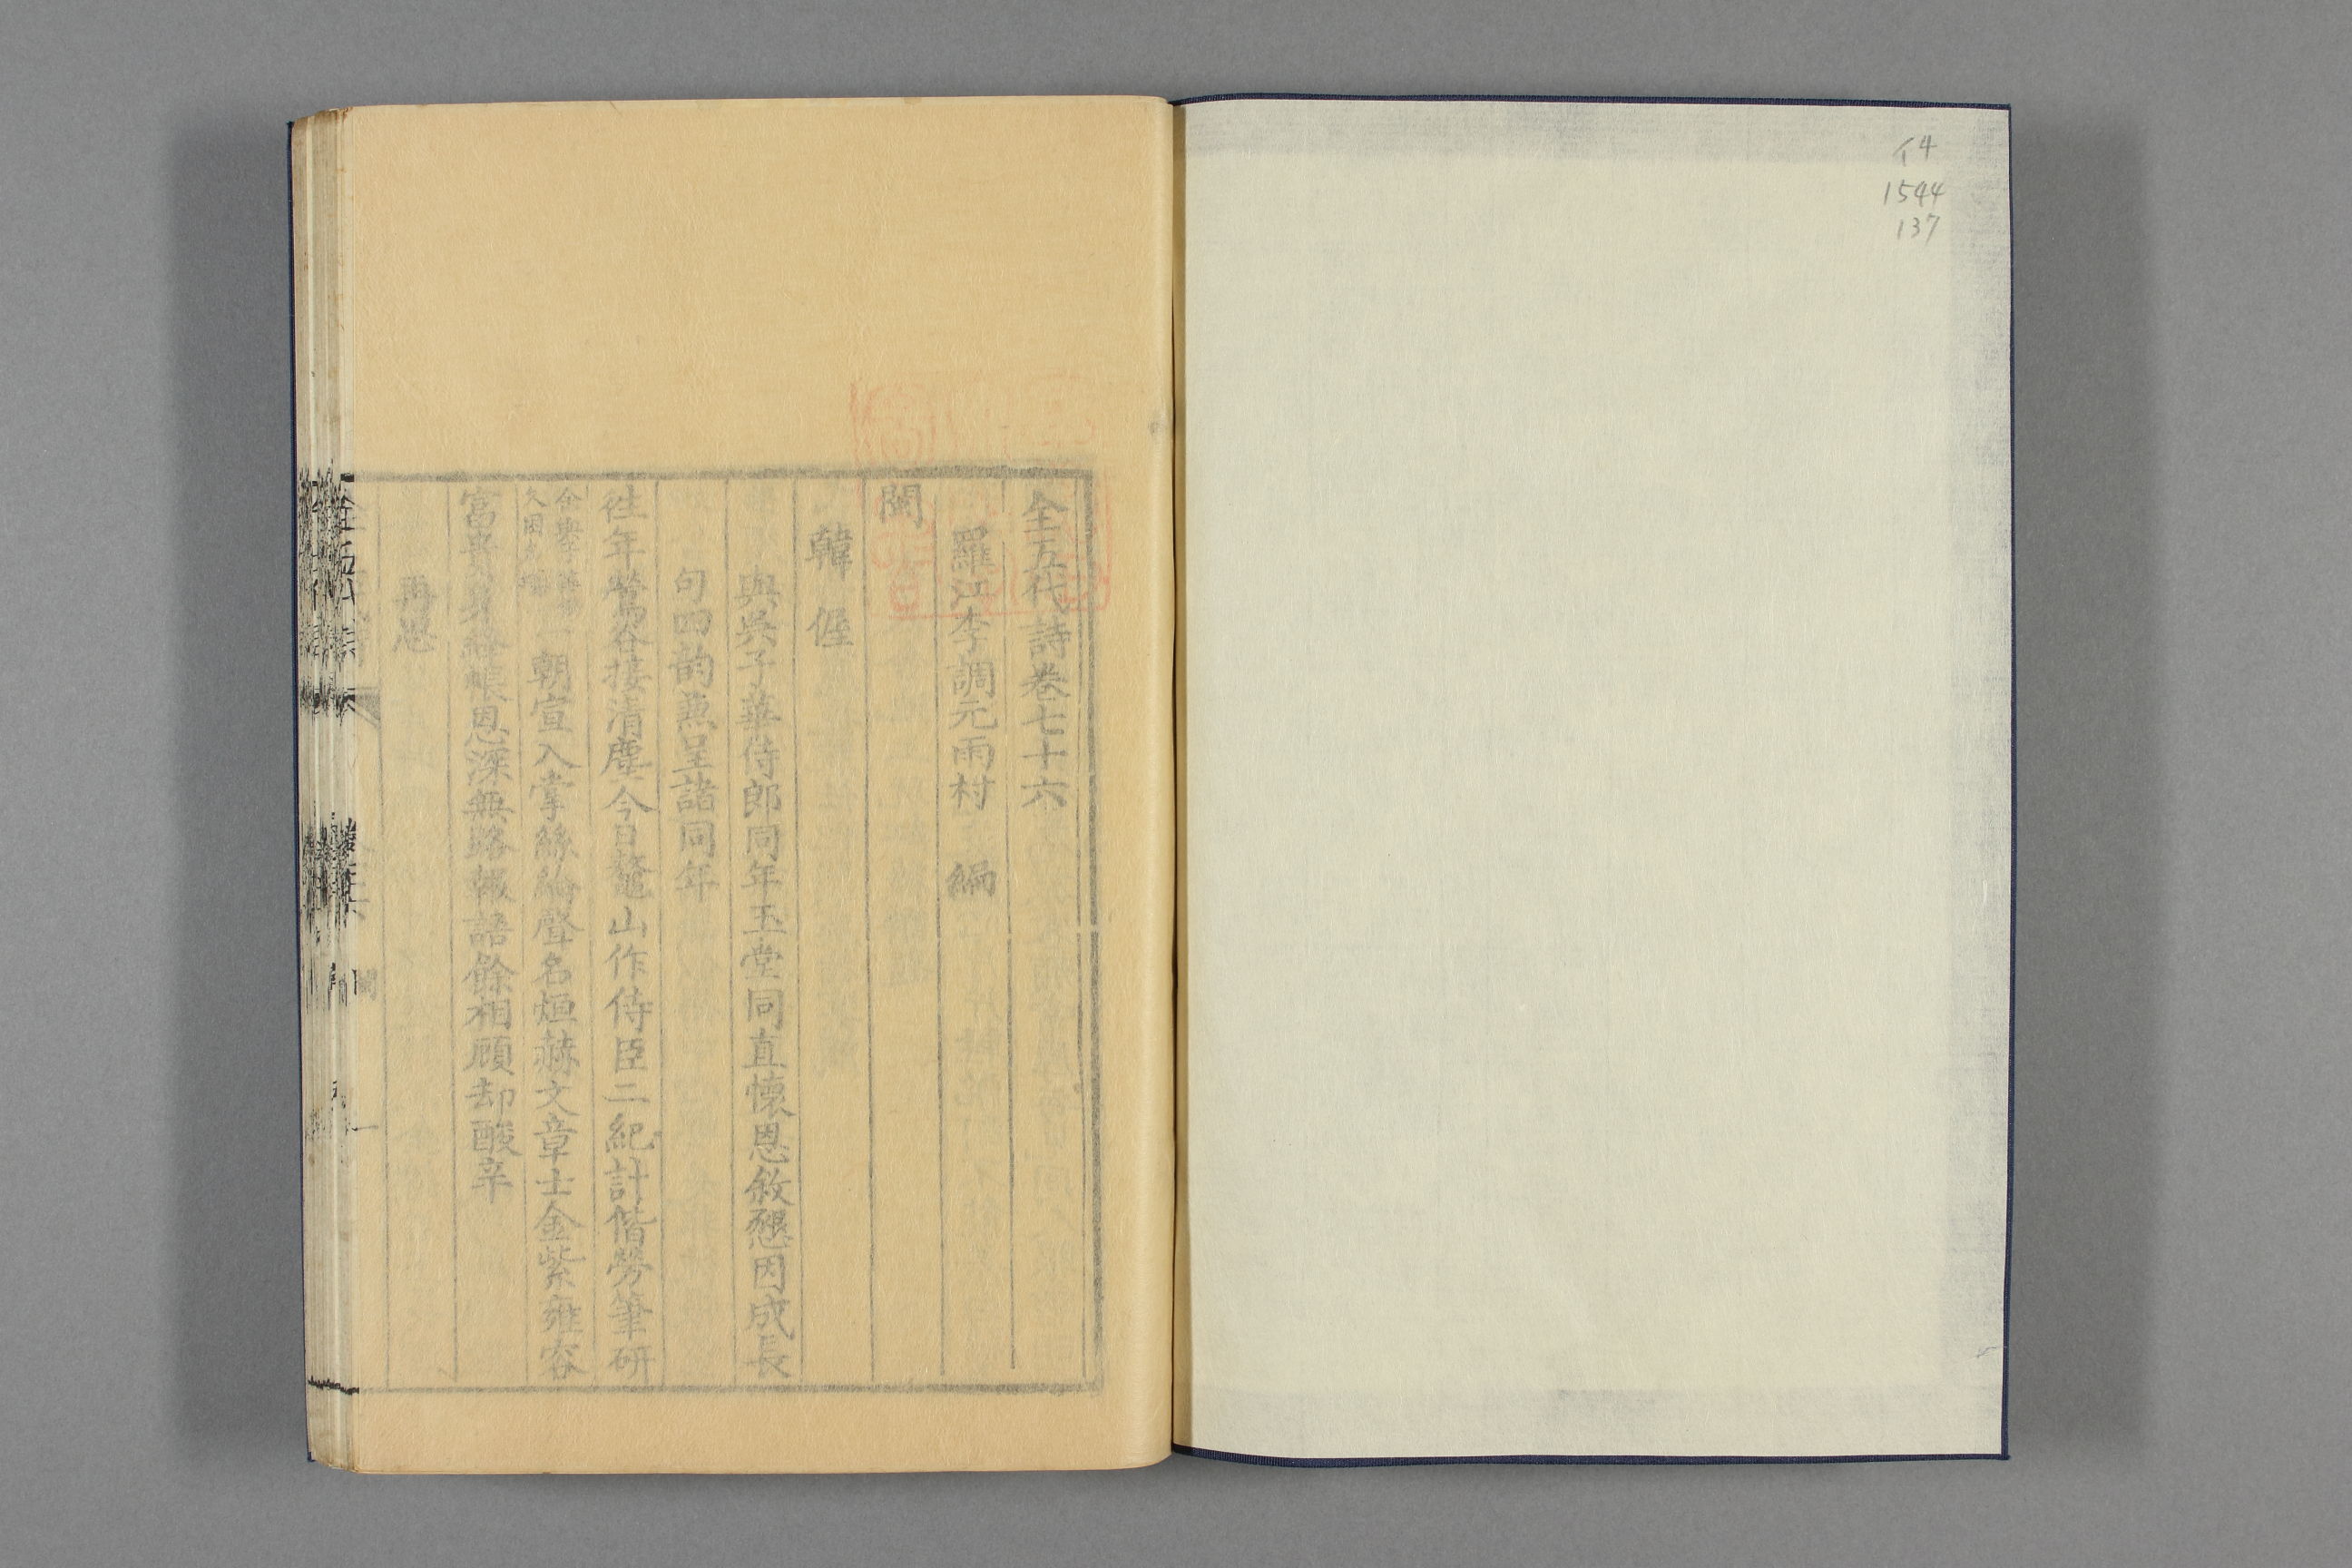 イ4
1544
137
全五代詩卷七十六
羅江李調元雨村 編
閩
韓偓
與吳子華侍郎同年玉堂同直懷恩敘懇因成長
句四韵兼呈諸同年
往年鶯谷接清塵今日鼇山作侍臣二紀計偕勞筆研
一朝宣入掌絲綸聲名烜赫文章士金紫雍容
富貴身絳帳恩深無路報語餘相顧却酸辛
再思
閩
一